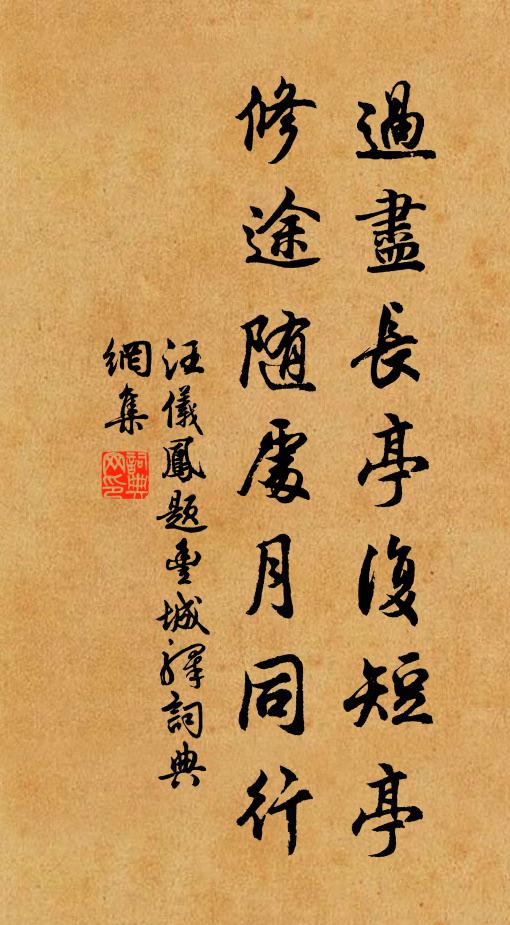 過盡長亭復短亭
修途隨處月同行
汪儀鳳題豐城驛詞典
網集
詞典
网印